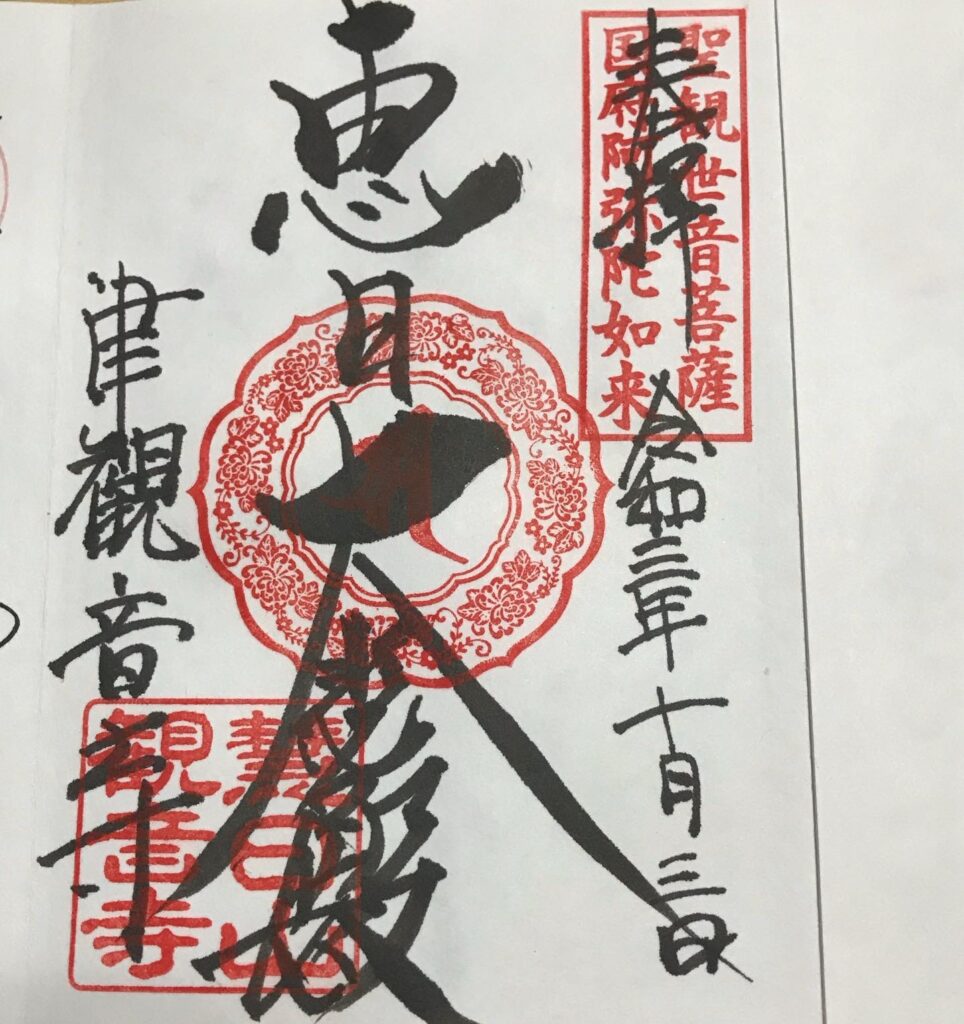 聖観世音菩薩
国府阿弥陀如来
奉拝 令和三年十月三日
恵日大
津觀音寺
慧日山
観音寺